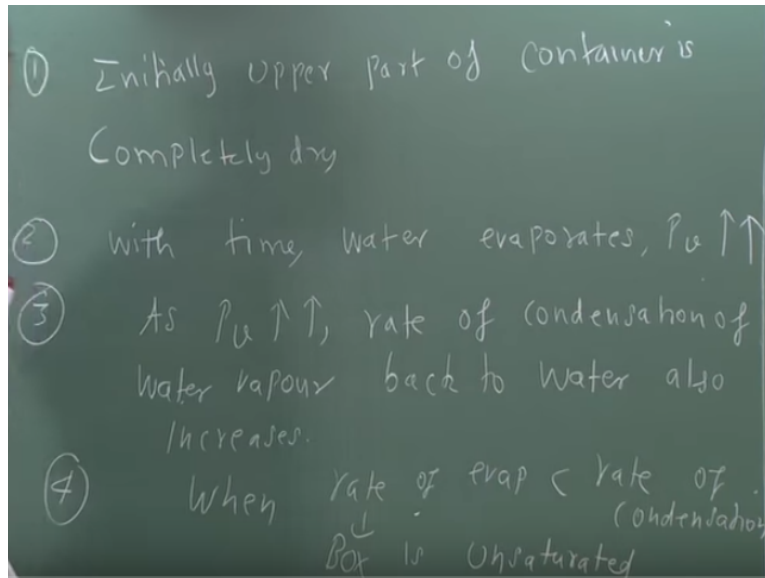 ① Initially upper part of container is
Completely dry
② with time, water evaporates, Pv ↑↑
③ As Pv ↑↑, rate of condensation of
water vapour back to water also
increases.
④ When rate of evap < rate of
condensation
↓
Box is unsaturated